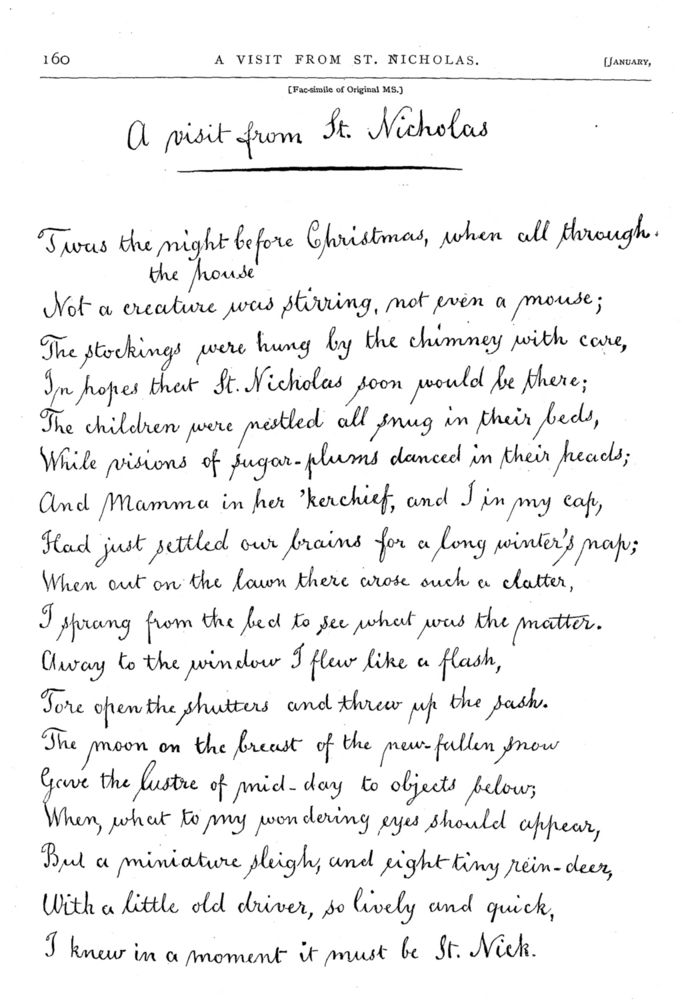 160 A VISIT FROM ST. NICHOLAS. [JANUARY,
[Fac-simile of Original MS.]
A visit from St. Nicholas
'Twas the night before Christmas, when all through
the house
Not a creature was stirring, not even a mouse;
The stockings were hung by the chimney with care,
In hopes that St. Nicholas soon would be there;
The children were nestled all snug in their beds,
While visions of sugar-plums danced in their heads;
And Mamma in her 'kerchief, and I in my cap,
Had just settled our brains for a long winter's nap;
When out on the lawn there arose such a clatter,
I sprang from the bed to see what was the matter.
Away to the window I flew like a flash,
Tore open the shutters and threw up the sash.
The moon on the breast of the new-fallen snow
Gave the lustre of mid-day to objects below;
When, what to my wondering eyes should appear,
But a miniature sleigh, and eight tiny rein-deer,
With a little old driver, so lively and quick,
I knew in a moment it must be St. Nick.